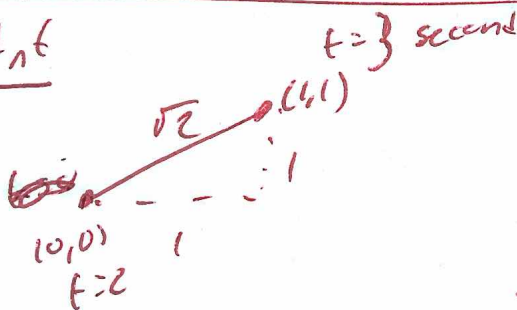 t=3 second
√2
(1,1)
1
(0,0)
1
t=2